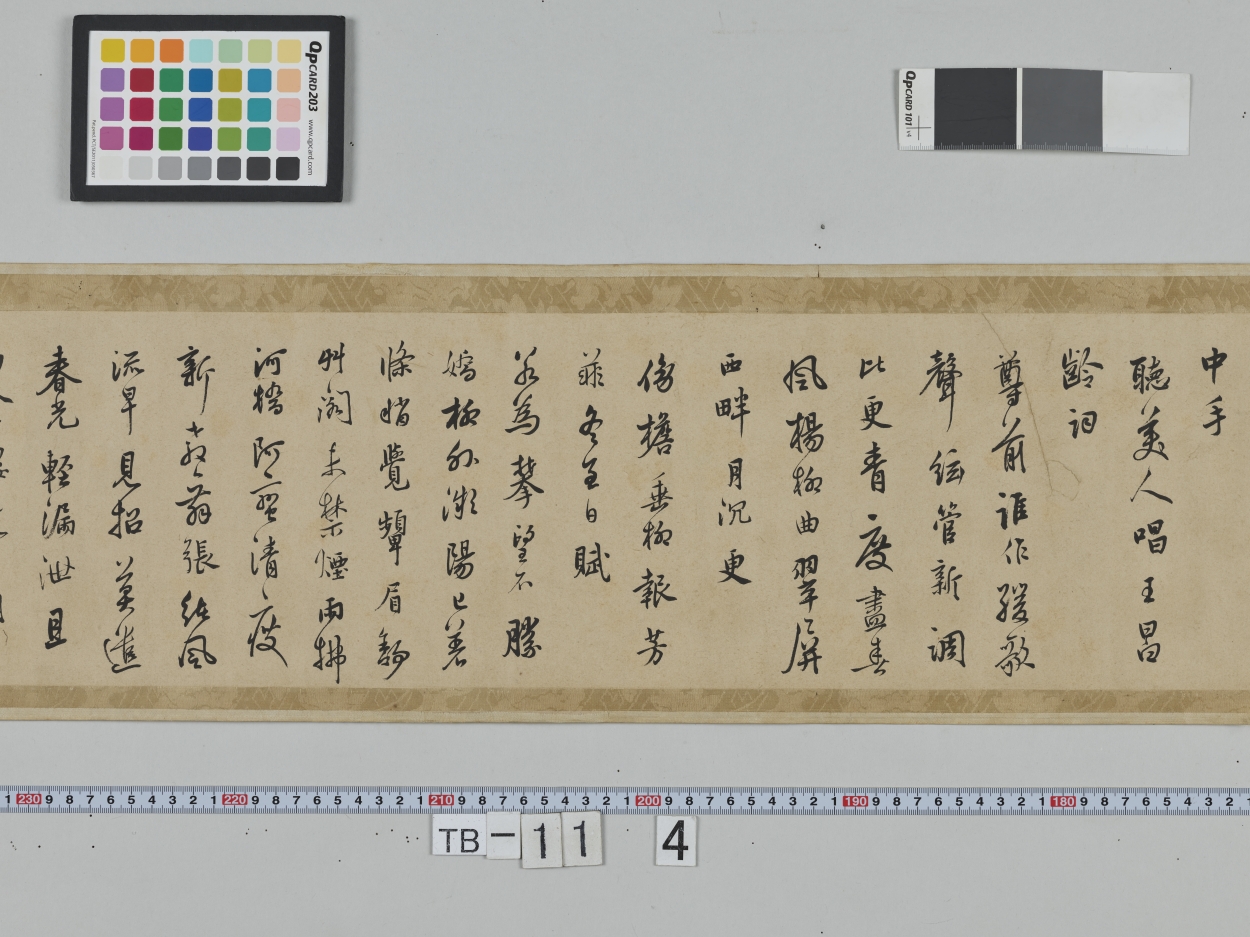 中手
聽美人唱王昌
齡詞
尊前誰作緩歌
聲絃管新調
比更青一度盡春
風楊柳曲翠屏
西畔月沉更
倚檐垂柳報芳
菲冬至日賦
為攀望不勝
嬌柳外漸陽已著
條梢覺顰眉
艸閣未禁煙雨拂
河橋阿蜜清
新張風
流早見招莫遣
春光輕漏泄且
QPCARD 203
www.qpcard.com
QPCARD 101 v4
1 230 9 8 7 6 5 4 3 2 1 220 9 8 7 6 5 4 3 2 1 210 9 8 7 6 5 4 3 2 1 200 9 8 7 6 5 4 3 2 1 190 9 8 7 6 5 4 3 2 1 180 9 8 7 6 5 4 3 2
TB-11 4